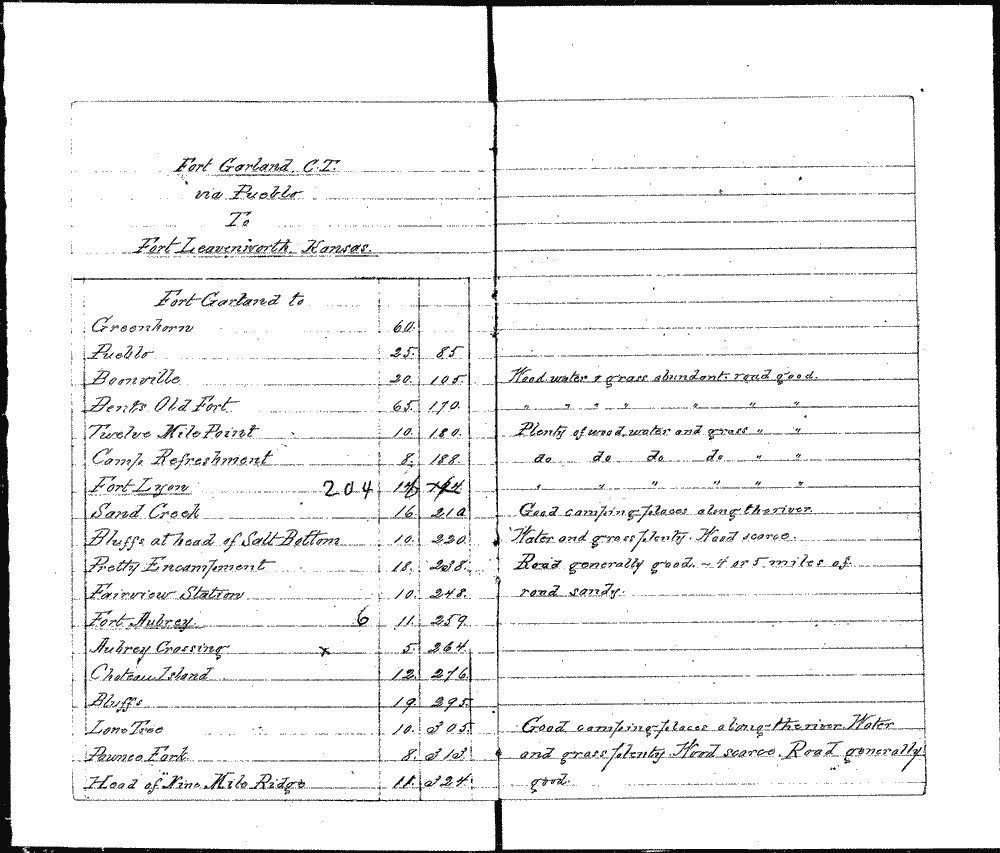 Fort Garland, C.T.
via Pueblo
To
Fort Leavenworth, Kansas.
Fort Garland to
Greenhorn 60.
Pueblo 25. 85
Boonville 20. 105. Wood water & grass abundant. road good.
Bents Old Fort 65. 170. " " " " " " "
Twelve Mile Point 10. 180. Plenty of wood, water and grass " "
Camp Refreshment 8. 188 do do do do " "
Fort Lyon 204 16 " " " " " "
Sand Creek 16. 210 Good camping-places along the river.
Bluffs at head of Salt Bottom 10. 220 Water and grass plenty. Wood scarce.
Pretty Encampment 18. 238. Road generally good. ~ 4 or 5 miles of
Fairview Station 10. 248. road sandy.
Fort Aubrey 6 11. 259
Aubrey Crossing x 5. 264.
Choteau Island 12. 276.
Bluffs 19. 295.
Lone Tree 10. 305. Good camping-places along-the river. Water
Pawnee Fork 8. 313. and grass plenty. Wood scarce. Road generally
Head of Nine Mile Ridge 11. 324. good.